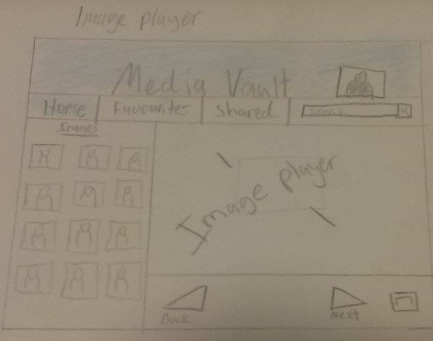 Image player
Media Vault
Home Favourites Shared Search
Image
Image player
Back Next